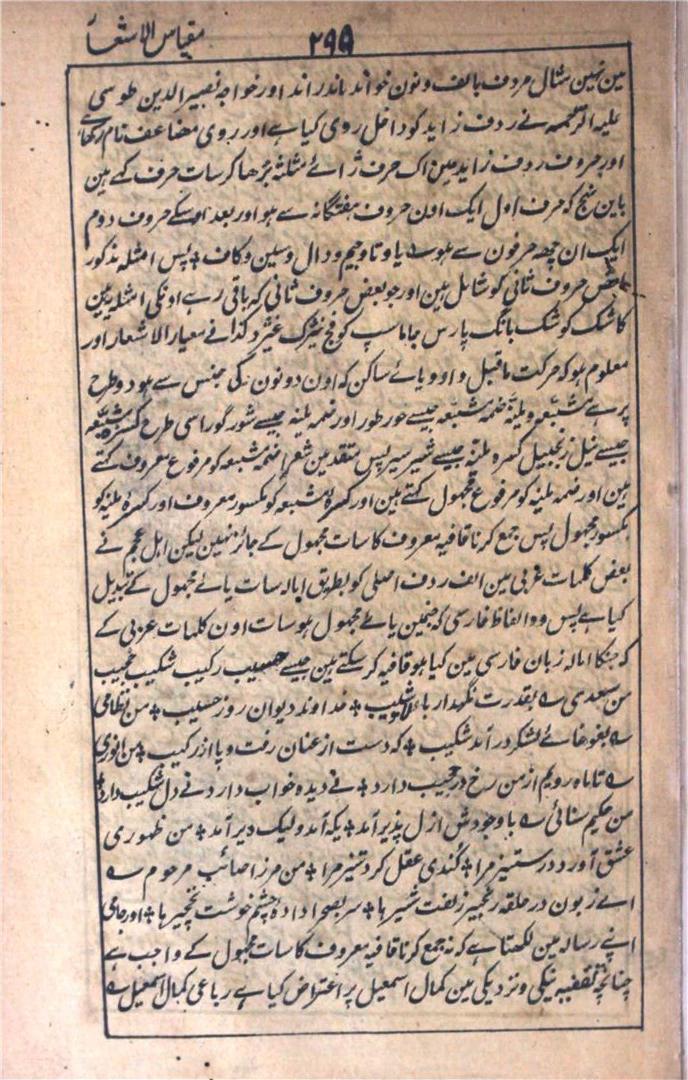 مقیاس الاشعار
۲۹۵
مین نہین مثال مردف بالف ونون خواند ماند راند اور خواجہ نصیر الدین طوسی
علیہ الرحمہ نے ردف زاید کو داخل روی کیا ہے اور روی مضاعف نام رکھا ہے
اور حروف ردف زاید مین اک حرف ژ اے مثلثہ بڑھا کر سات حرف کہے ہین
باین نہج کہ حرف اول ایک اون حروف ہفتگانہ سے ہو اور بعد اوسکے حروف دوم
ایک ان چھہ حرفون سے ہو ے یا و تا و جیم و دال و سین و کاف ٭ پس امثلہ مذکور
بعض حروف ثانی کو شامل ہین اور جو بعض حروف ثانی کہ باقی رہے اونکی امثلہ یہ ہین
کاشک کوشک بانگ پارس جاماسپ کوفج نیژک غیرہ کذا فے معیار الاشعار اور
معلوم ہو کہ حرکت ماقبل واو ویائے ساکن کہ اون دونون کی جنس سے ہو دو طرح
پر ہے مشبعہ وملینہ ضمہ مشبعہ جیسے حور طور اور ضمہ ملینہ جیسے شور گور اسی طرح کسرہ مشبعہ
جیسے نیل زنجبیل کسرہ ملینہ جیسے شیر سیر پس متقدمین شعرا ضمہ مشبعہ کو مرفوع معروف کہتے
ہین اور ضمہ ملینہ کو مرفوع مجہول کہتے ہین اور کسرہ مشبعہ کو مکسور معروف اور کسرہ ملینہ کو
مکسور مجہول پس جمع کرنا قافیہ معروف کا سات مجہول کے جائز نہین لیکن اہل عجم نے
بعض کلمات عربی مین الف ردف اصلی کو بطریق امالہ سات یائے مجہول کے تبدیل
کیا ہے پس وہ الفاظ فارسی کہ جنمین یائے مجہول ہو سات اون کلمات عربی کے
کہ جنکا امالہ زبان فارسی مین کیا ہو قافیہ کر سکتے ہین جیسے حسیب رکیب شکیب حجیب
من سعدی ے بقدرت نگہدار بالا وشیب ٭ خداوند دیوان روز حسیب ٭ من نظامی
ے بغوغائے لشکر در آمد شکیب ٭ کہ دست از عنان رفت و پا از رکیب ٭ من انوری
ے تا ماہ رویم از من رخ در حجیب دارد ٭ نے دیدہ خواب دارد نے دل شکیب دارد ٭
من حکیم سنائی ے با وجودش ازل پذیر آمد ٭ یکہ آمد ولیک دیر آمد ٭ من ظہوری
عشق آورد در ستیز مرا ٭ کندی عقل کرد تیز مرا ٭ من مرزا صائب مرحوم ے
اے زبون در حلقہ زنجیر زلفت شیرہا ٭ سر بصحرا دادہ چشم خوشت نخچیرہا ٭ اور جامی
اپنے رسالہ مین لکھتا ہے کہ نہ جمع کرنا قافیہ معروف کا سات مجہول کے واجب ہے
چنانچہ تقفیہ نیکی و نزدیکی مین کمال اسمعیل پر اعتراض کیا ہے رباعی کمال اسمعیل ے